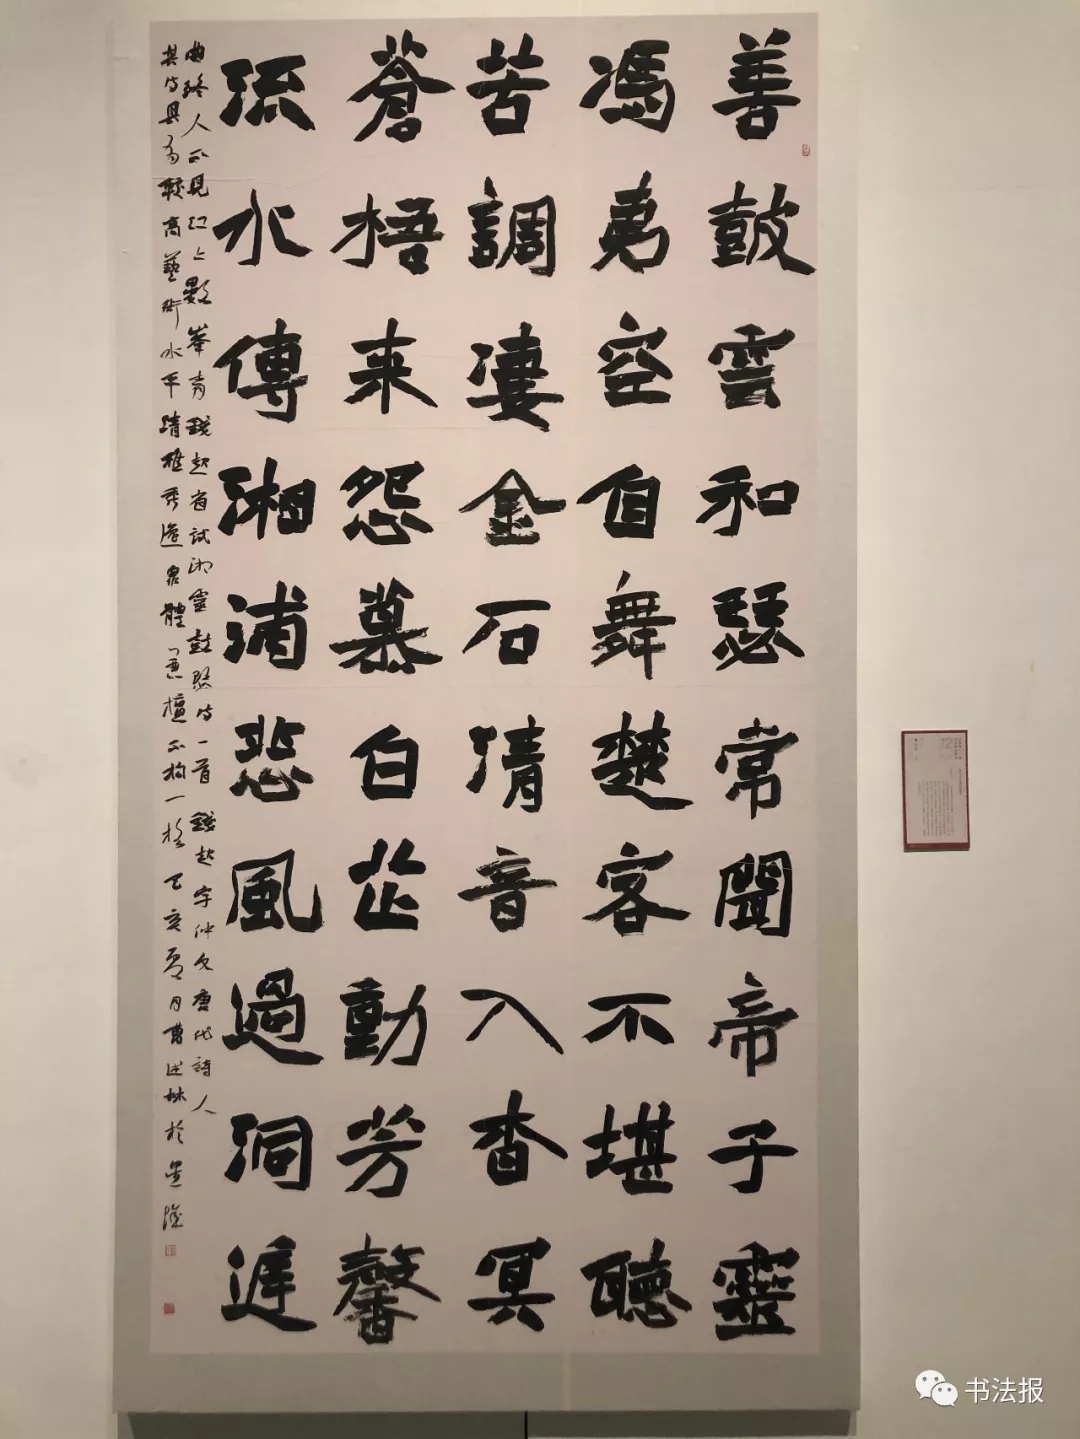 善鼓雲和瑟常聞帝子靈
馮夷空自舞楚客不堪聽
苦調凄金石清音入杳冥
蒼梧来怨慕白芷動芳馨
流水傳湘浦悲風過洞庭
曲終人不見江上數峯青錢起省試湘靈鼓瑟詩一首錢起字仲文唐代詩人
其詩具有較高藝術水平清雅秀逸眾體兼擅不拘一格己亥夏月曹述林於
书法报